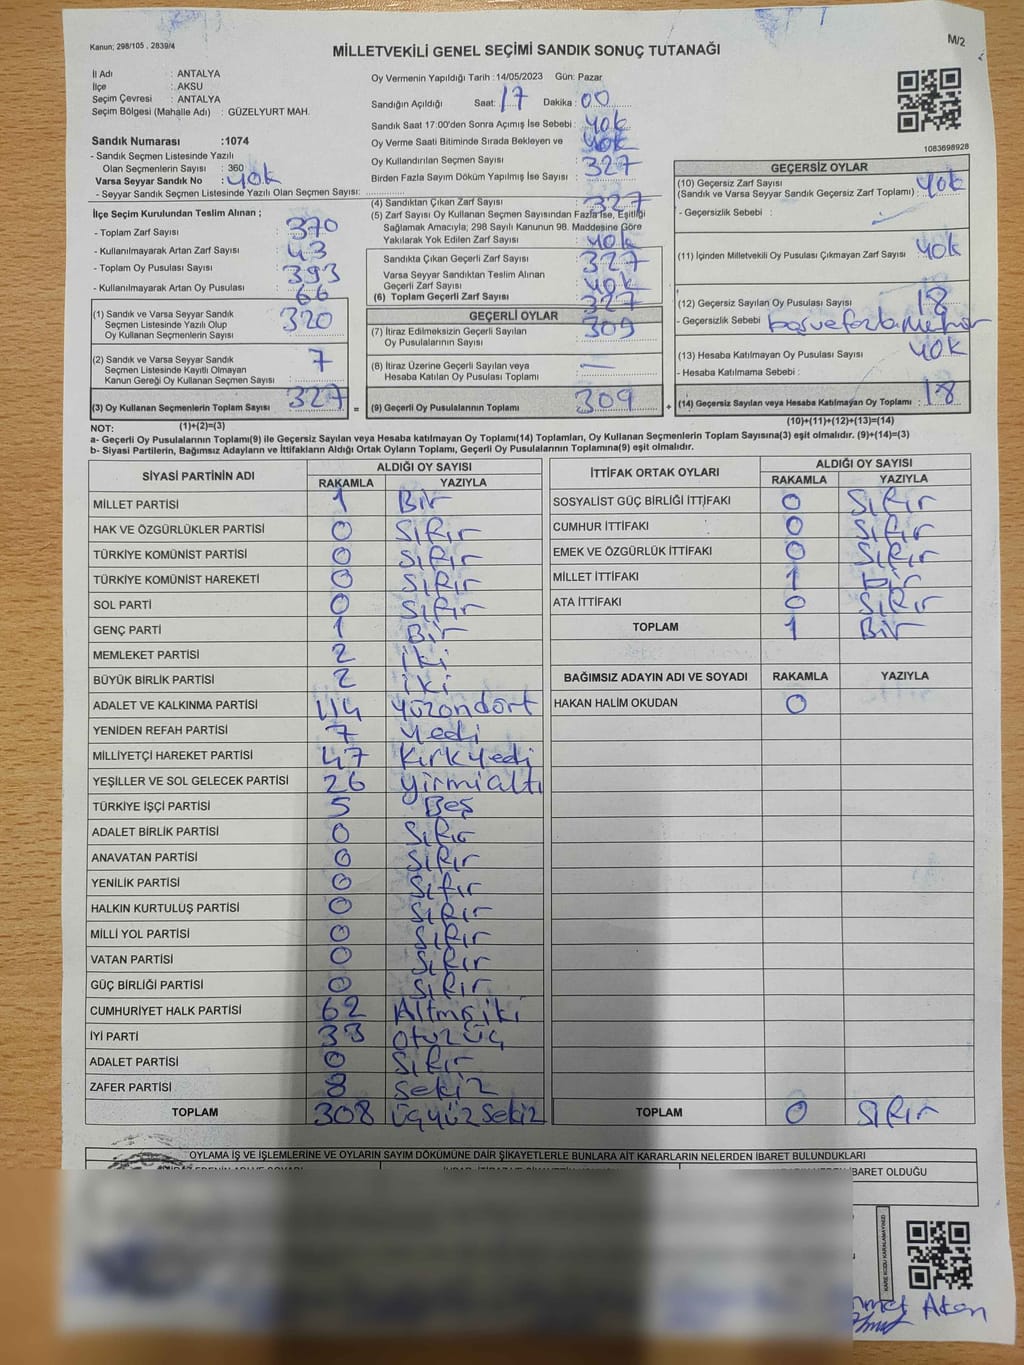 Kanun; 298/105 , 2839/4
MİLLETVEKİLİ GENEL SEÇİMİ SANDIK SONUÇ TUTANAĞI
M/2
İl Adı : ANTALYA
İlçe : AKSU
Seçim Çevresi : ANTALYA
Seçim Bölgesi (Mahalle Adı) : GÜZELYURT MAH.
Oy Vermenin Yapıldığı Tarih : 14/05/2023 Gün: Pazar
Sandığın Açıldığı Saat: 17 Dakika : 00
Sandık Saat 17:00'den Sonra Açımış İse Sebebi : yok
Oy Verme Saati Bitiminde Sırada Bekleyen ve : yok
Oy Kullandırılan Seçmen Sayısı : 327
Birden Fazla Sayım Döküm Yapılmış İse Sayısı :
1083698928
Sandık Numarası :1074
- Sandık Seçmen Listesinde Yazılı
Olan Seçmenlerin Sayısı : 360
Varsa Seyyar Sandık No : yok
- Seyyar Sandık Seçmen Listesinde Yazılı Olan Seçmen Sayısı:
İlçe Seçim Kurulundan Teslim Alınan ;
- Toplam Zarf Sayısı : 370
- Kullanılmayarak Artan Zarf Sayısı : 43
- Toplam Oy Pusulası Sayısı : 393
- Kullanılmayarak Artan Oy Pusulası : 66
(1) Sandık ve Varsa Seyyar Sandık
Seçmen Listesinde Yazılı Olup
Oy Kullanan Seçmenlerin Sayısı : 320
(2) Sandık ve Varsa Seyyar Sandık
Seçmen Listesinde Kayıtlı Olmayan
Kanun Gereği Oy Kullanan Seçmen Sayısı : 7
(3) Oy Kullanan Seçmenlerin Toplam Sayısı : 327
(1)+(2)=(3)
(4) Sandıktan Çıkan Zarf Sayısı : 327
(5) Zarf Sayısı Oy Kullanan Seçmen Sayısından Fazla İse, Eşitliği
Sağlamak Amacıyla; 298 Sayılı Kanunun 98. Maddesine Göre
Yakılarak Yok Edilen Zarf Sayısı : yok
Sandıkta Çıkan Geçerli Zarf Sayısı : 327
Varsa Seyyar Sandıktan Teslim Alınan
Geçerli Zarf Sayısı : yok
(6) Toplam Geçerli Zarf Sayısı : 327
GEÇERLİ OYLAR
(7) İtiraz Edilmeksizin Geçerli Sayılan
Oy Pusulalarının Sayısı : 309
(8) İtiraz Üzerine Geçerli Sayılan veya
Hesaba Katılan Oy Pusulası Toplamı : —
= (9) Geçerli Oy Pusulalarının Toplamı : 309 +
GEÇERSİZ OYLAR
(10) Geçersiz Zarf Sayısı
(Sandık ve Varsa Seyyar Sandık Geçersiz Zarf Toplamı) : yok
- Geçersizlik Sebebi :
(11) İçinden Milletvekili Oy Pusulası Çıkmayan Zarf Sayısı : yok
(12) Geçersiz Sayılan Oy Pusulası Sayısı : 18
- Geçersizlik Sebebi : boş ve fazla
(13) Hesaba Katılmayan Oy Pusulası Sayısı : yok
- Hesaba Katılmama Sebebi :
(14) Geçersiz Sayılan veya Hesaba Katılmayan Oy Toplamı : 18
(10)+(11)+(12)+(13)=(14)
NOT:
a- Geçerli Oy Pusulalarının Toplamı(9) ile Geçersiz Sayılan veya Hesaba katılmayan Oy Toplamı(14) Toplamları, Oy Kullanan Seçmenlerin Toplam Sayısına(3) eşit olmalıdır. (9)+(14)=(3)
b- Siyasi Partilerin, Bağımsız Adayların ve İttifakların Aldığı Ortak Oyların Toplamı, Geçerli Oy Pusulalarının Toplamına(9) eşit olmalıdır.
SİYASİ PARTİNİN ADI ALDIĞI OY SAYISI
RAKAMLA YAZIYLA
MİLLET PARTİSİ 1 Bir
HAK VE ÖZGÜRLÜKLER PARTİSİ 0 Sıfır
TÜRKİYE KOMÜNİST PARTİSİ 0 Sıfır
TÜRKİYE KOMÜNİST HAREKETİ 0 Sıfır
SOL PARTİ 0 Sıfır
GENÇ PARTİ 1 Bir
MEMLEKET PARTİSİ 2 iki
BÜYÜK BİRLİK PARTİSİ 2 iki
ADALET VE KALKINMA PARTİSİ 114 yüzondört
YENİDEN REFAH PARTİSİ 7 yedi
MİLLİYETÇİ HAREKET PARTİSİ 47 Kırkyedi
YEŞİLLER VE SOL GELECEK PARTİSİ 26 yirmialtı
TÜRKİYE İŞÇİ PARTİSİ 5 Beş
ADALET BİRLİK PARTİSİ 0 Sıfır
ANAVATAN PARTİSİ 0 Sıfır
YENİLİK PARTİSİ 0 Sıfır
HALKIN KURTULUŞ PARTİSİ 0 Sıfır
MİLLİ YOL PARTİSİ 0 Sıfır
VATAN PARTİSİ 0 Sıfır
GÜÇ BİRLİĞİ PARTİSİ 0 Sıfır
CUMHURİYET HALK PARTİSİ 62 Altmışiki
İYİ PARTİ 33 otuzüç
ADALET PARTİSİ 0 Sıfır
ZAFER PARTİSİ 8 Sekiz
TOPLAM 308 üçyüzsekiz
İTTİFAK ORTAK OYLARI ALDIĞI OY SAYISI
RAKAMLA YAZIYLA
SOSYALİST GÜÇ BİRLİĞİ İTTİFAKI 0 Sıfır
CUMHUR İTTİFAKI 0 Sıfır
EMEK VE ÖZGÜRLÜK İTTİFAKI 0 Sıfır
MİLLET İTTİFAKI 1 Bir
ATA İTTİFAKI 0 Sıfır
TOPLAM 1 Bir
BAĞIMSIZ ADAYIN ADI VE SOYADI RAKAMLA YAZIYLA
HAKAN HALİM OKUDAN 0
TOPLAM 0 Sıfır
OYLAMA İŞ VE İŞLEMLERİNE VE OYLARIN SAYIM DÖKÜMÜNE DAİR ŞİKAYETLERLE BUNLARA AİT KARARLARIN NELERDEN İBARET BULUNDUKLARI
İBARET OLDUĞU
KARE KODU KARALAMAYINIZ!